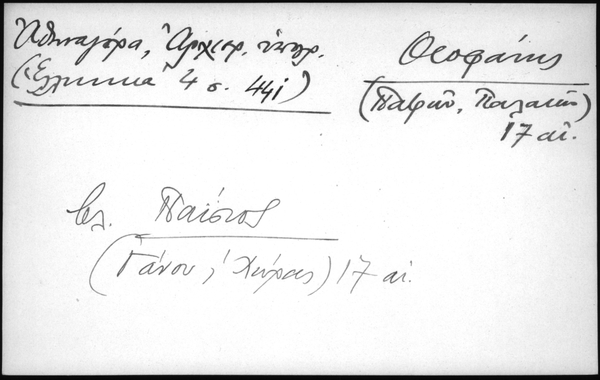 Ἀθηναγόρα, Ἀρχιερ. ὑπομ.
(Ἑλληνικά 4 σ. 441)
Θεοφάνης
(Πατρῶν, Παλαιῶν)
17 αἰ.
βλ. Παΐσιος
(Γάνου, & Χώρας) 17 αἰ.